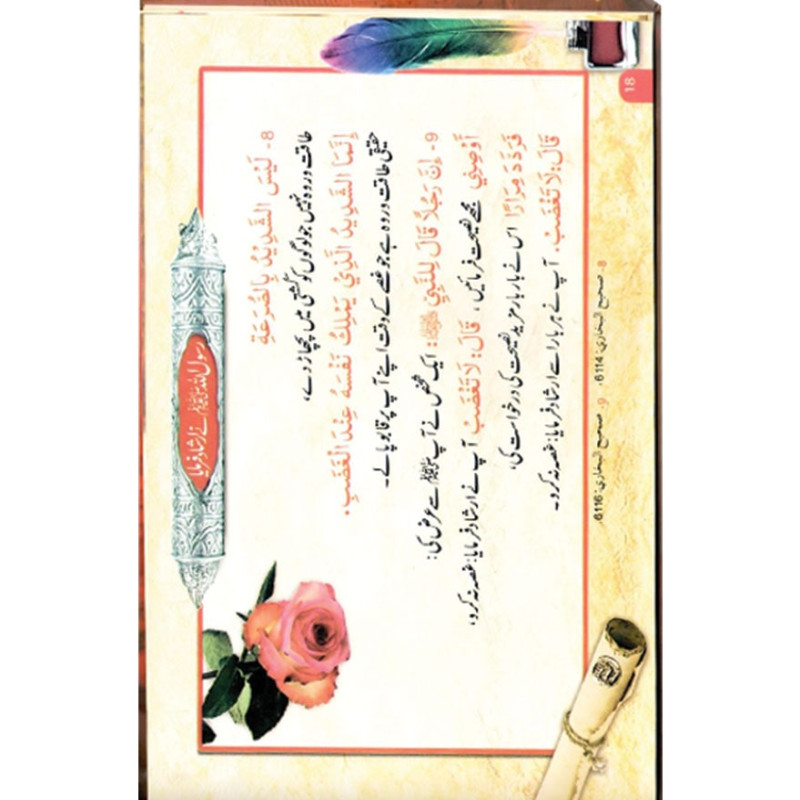 18
رسول اللہ ﷺ نے ارشاد فرمایا
8- لَيْسَ الشَّدِيْدُ بِالصُّرَعَةِ
طاقت ور وہ نہیں جو لوگوں کو کشتی میں پچھاڑ دے،
إِنَّمَا الشَّدِيْدُ الَّذِيْ يَمْلِكُ نَفْسَهُ عِنْدَ الْغَضَبِ.
حقیقی طاقت ور وہ ہے جو غصے کے وقت اپنے آپ پر قابو پا لے۔
9- إِنَّ رَجُلاً قَالَ لِلنَّبِيِّ ﷺ: ایک شخص نے آپ ﷺ سے عرض کی:
أَوْصِنِي مجھے نصیحت فرمائیں، قَالَ: لَا تَغْضَبْ آپ نے ارشاد فرمایا: غصہ نہ کرو،
فَرَدَّدَ مِرَارًا اس نے بار بار مزید نصیحت کی درخواست کی،
قَالَ: لَا تَغْضَبْ. آپ نے ہر بار اسے ارشاد فرمایا: غصہ نہ کرو۔
8- صحیح البخاری: 6114، 9- صحیح البخاری: 6116،